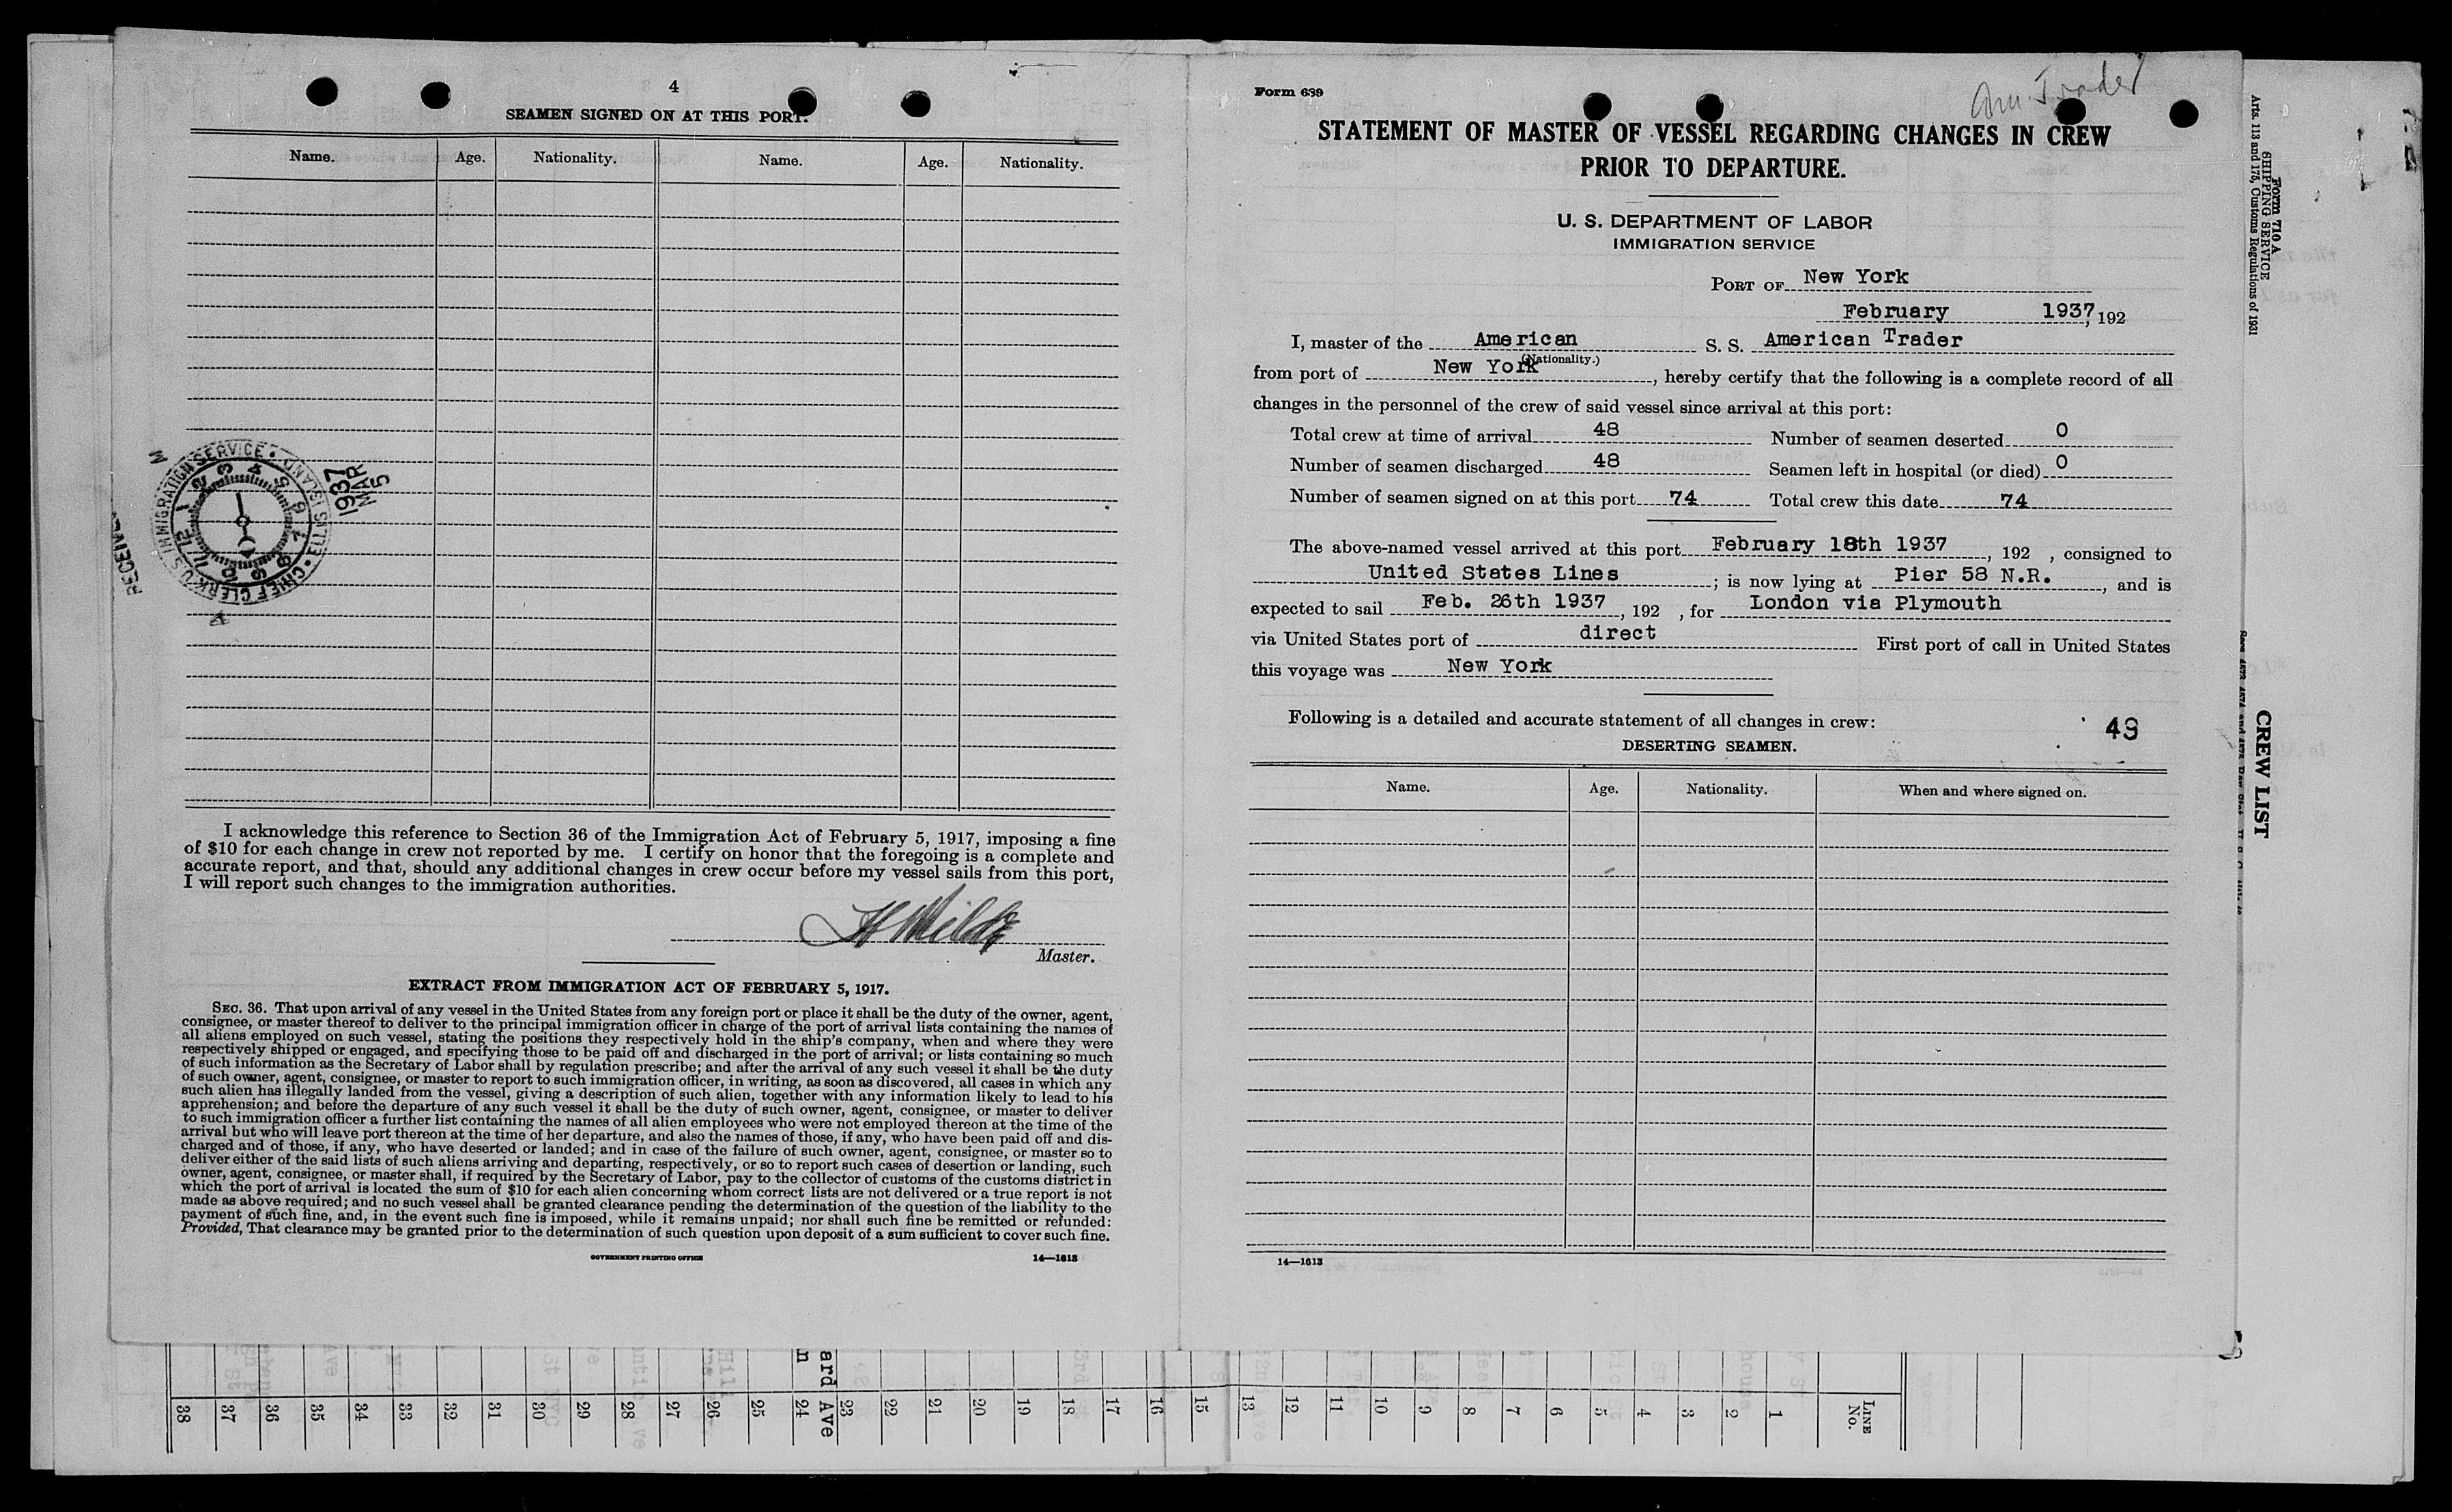 4
SEAMEN SIGNED ON AT THIS PORT.
Name. Age. Nationality. Name. Age. Nationality.
RECEIVED
U.S. IMMIGRATION SERVICE • ELLIS ISLAND • CHIEF CLERK
1 2 3 4 5 6 7 8 9 10 11 12
M
1937
MAR
5
I acknowledge this reference to Section 36 of the Immigration Act of February 5, 1917, imposing a fine
of $10 for each change in crew not reported by me. I certify on honor that the foregoing is a complete and
accurate report, and that, should any additional changes in crew occur before my vessel sails from this port,
I will report such changes to the immigration authorities.
Master.
EXTRACT FROM IMMIGRATION ACT OF FEBRUARY 5, 1917.
SEC. 36. That upon arrival of any vessel in the United States from any foreign port or place it shall be the duty of the owner, agent,
consignee, or master thereof to deliver to the principal immigration officer in charge of the port of arrival lists containing the names of
all aliens employed on such vessel, stating the positions they respectively hold in the ship's company, when and where they were
respectively shipped or engaged, and specifying those to be paid off and discharged in the port of arrival; or lists containing so much
of such information as the Secretary of Labor shall by regulation prescribe; and after the arrival of any such vessel it shall be the duty
of such owner, agent, consignee, or master to report to such immigration officer, in writing, as soon as discovered, all cases in which any
such alien has illegally landed from the vessel, giving a description of such alien, together with any information likely to lead to his
apprehension; and before the departure of any such vessel it shall be the duty of such owner, agent, consignee, or master to deliver
to such immigration officer a further list containing the names of all alien employees who were not employed thereon at the time of the
arrival but who will leave port thereon at the time of her departure, and also the names of those, if any, who have been paid off and dis-
charged and of those, if any, who have deserted or landed; and in case of the failure of such owner, agent, consignee, or master so to
deliver either of the said lists of such aliens arriving and departing, respectively, or so to report such cases of desertion or landing, such
owner, agent, consignee, or master shall, if required by the Secretary of Labor, pay to the collector of customs of the customs district in
which the port of arrival is located the sum of $10 for each alien concerning whom correct lists are not delivered or a true report is not
made as above required; and no such vessel shall be granted clearance pending the determination of the question of the liability to the
payment of such fine, and, in the event such fine is imposed, while it remains unpaid; nor shall such fine be remitted or refunded:
Provided, That clearance may be granted prior to the determination of such question upon deposit of a sum sufficient to cover such fine.
GOVERNMENT PRINTING OFFICE 14—1613
Form 689
Am. Trader
STATEMENT OF MASTER OF VESSEL REGARDING CHANGES IN CREW
PRIOR TO DEPARTURE.
U. S. DEPARTMENT OF LABOR
IMMIGRATION SERVICE
PORT OF New York
February 1937, 192
I, master of the American S. S. American Trader
(Nationality.)
from port of New York, hereby certify that the following is a complete record of all
changes in the personnel of the crew of said vessel since arrival at this port:
Total crew at time of arrival 48 Number of seamen deserted 0
Number of seamen discharged 48 Seamen left in hospital (or died) 0
Number of seamen signed on at this port 74 Total crew this date 74
The above-named vessel arrived at this port February 18th 1937, 192 , consigned to
United States Lines; is now lying at Pier 58 N.R., and is
expected to sail Feb. 26th 1937, 192 , for London via Plymouth
via United States port of direct First port of call in United States
this voyage was New York
Following is a detailed and accurate statement of all changes in crew:
49
DESERTING SEAMEN.
Name. Age. Nationality. When and where signed on.
14—1613
Form 710 A
SHIPPING SERVICE
Arts. 113 and 175, Customs Regulations of 1931
CREW LIST
ard Ave
n
38 37 36 35 34 33 32 31 30 29 28 27 26 25 24 23 22 21 20 19 18 17 16 15 13 12 11 10 9 8 7 6 5 4 3 2 1 LINE No.